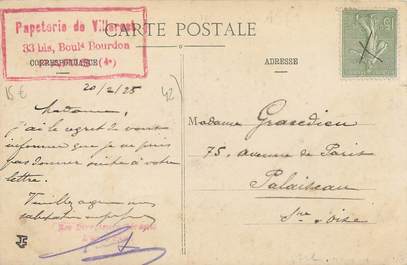 Papeterie de Villeret
33 bis, Boul.d Bourdon
(4e)
CARTE POSTALE
CORRESPONDANCE
ADRESSE
15
15 €
42
20/2/25
Madame,
j'ai le regret de vous
informer que je ne puis
pas donner suite à votre
lettre.
Veuillez agréer mes
salutations
Madame Grasedieu
75, avenue de Paris
Palaiseau
Sne & Oise